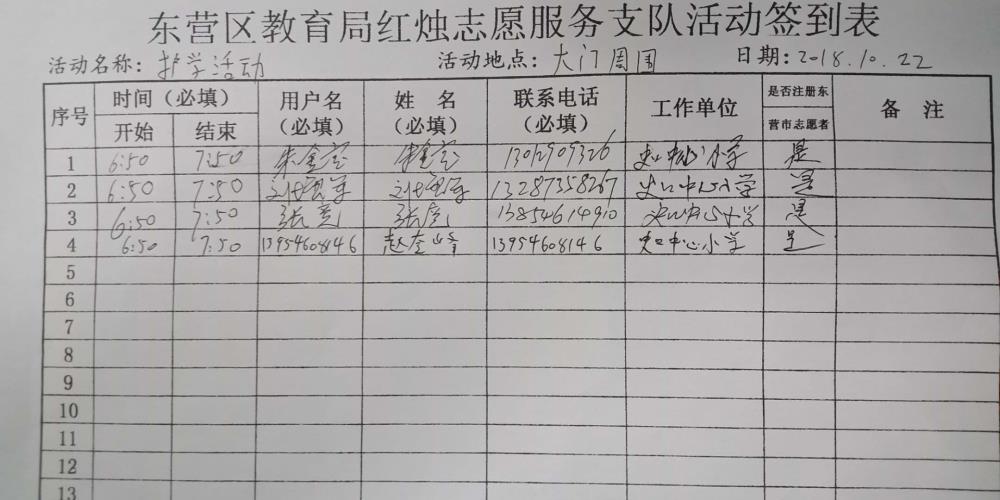 东营区教育局红烛志愿服务支队活动签到表
活动名称: 护学活动 活动地点: 大门周围 日期: 2018.10.22
序号 时间（必填） 用户名（必填） 姓 名（必填） 联系电话（必填） 工作单位 是否注册东营市志愿者 备 注
开始 结束
1 6:50 7:50 朱金宝 朱金宝 是
2 6:50 7:50 13287358267 史口中心小学 是
3 6:50 7:50 张亮 张亮 13854614910 史口中心小学 是
4 6:50 7:50 13954608146 赵奎峰 13954608146 史口中心小学 是
5
6
7
8
9
10
11
12
13